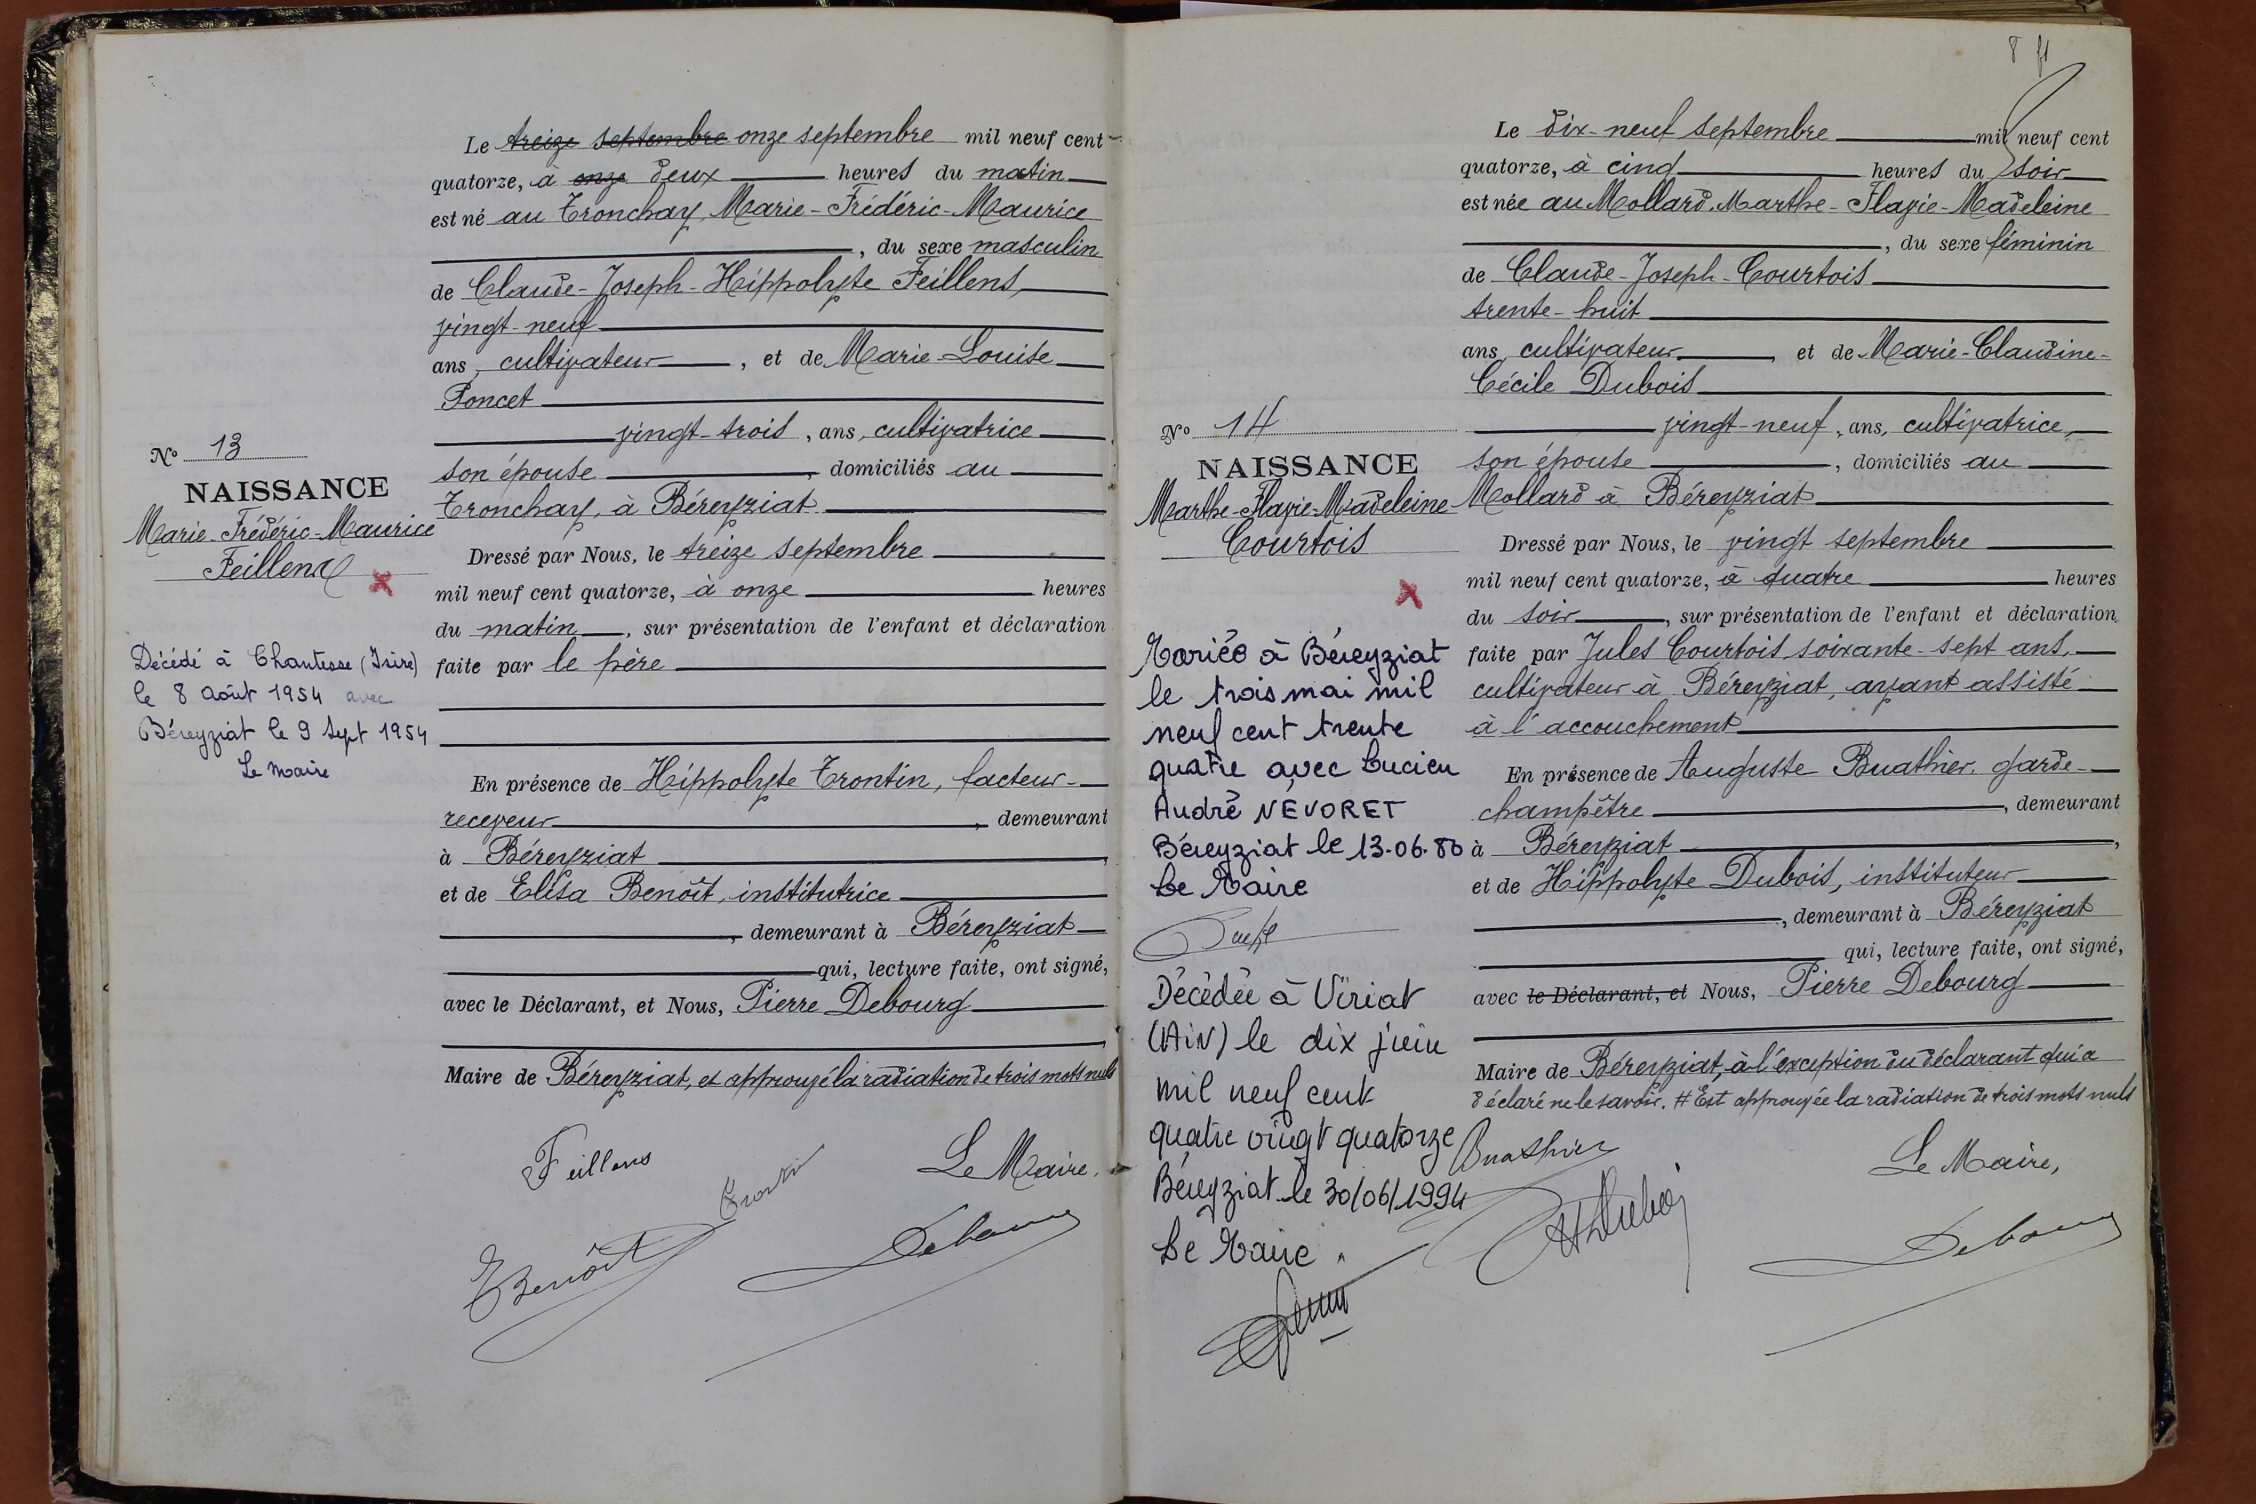 Le treize septembre onze septembre mil neuf cent
quatorze, à onze deux heures du matin
est né au Tronchay, Marie-Frédéric-Maurice
, du sexe masculin
de Claude-Joseph-Hippolyte Feillens,
vingt-neuf
ans, cultivateur, et de Marie-Louise
Poncet
vingt-trois, ans, cultivatrice
son épouse, domiciliés au
Tronchay, à Béreyziat
Dressé par Nous, le treize septembre
mil neuf cent quatorze, à onze heures
du matin, sur présentation de l'enfant et déclaration
faite par le père
En présence de Hippolyte Trontin, facteur-
receveur, demeurant
à Béreyziat,
et de Elisa Benoît, institutrice
, demeurant à Béreyziat
qui, lecture faite, ont signé,
avec le Déclarant, et Nous, Pierre Debourg
Maire de Béreyziat, et approuvé la radiation de trois mots nuls
Feillens
Trontin
Le Maire,
EBenoît
Debourg
No 13
NAISSANCE
Marie-Frédéric-Maurice
Feillens
Décédé à Chantesse (Isère)
le 8 Août 1954 avec
Béreyziat le 9 Sept 1954
Le maire
8 f1
Le dix-neuf septembre mil neuf cent
quatorze, à cinq heures du soir
est née au Mollard, Marthe-Flavie-Madeleine
, du sexe féminin
de Claude-Joseph-Courtois
trente-huit
ans, cultivateur, et de Marie-Claudine-
Cécile Dubois
vingt-neuf, ans, cultivatrice,
son épouse, domiciliés au
Mollard à Béreyziat
Dressé par Nous, le vingt septembre
mil neuf cent quatorze, à quatre heures
du soir, sur présentation de l'enfant et déclaration
faite par Jules Courtois, soixante-sept ans,
cultivateur à Béreyziat, ayant assisté
à l'accouchement
En présence de Auguste Buathier, garde-
champêtre, demeurant
à Béreyziat,
et de Hippolyte Dubois, instituteur
, demeurant à Béreyziat
qui, lecture faite, ont signé,
avec le Déclarant, et Nous, Pierre Debourg
Maire de Béreyziat, à l'exception du déclarant qui a
déclaré ne le savoir. # Est approuvée la radiation de trois mots nuls
Buathier
HDubois
Le Maire,
Debourg
No 14
NAISSANCE
Marthe-Flavie-Madeleine
Courtois
Mariée à Béreyziat
le trois mai mil
neuf cent trente
quatre avec Lucien
André NÉVORET
Béreyziat le 13.06.80
Le Maire
Décédée à Viriat
(AiN) le dix juin
mil neuf cent
quatre vingt quatorze
Béreyziat le 30/06/1994
Le Maire